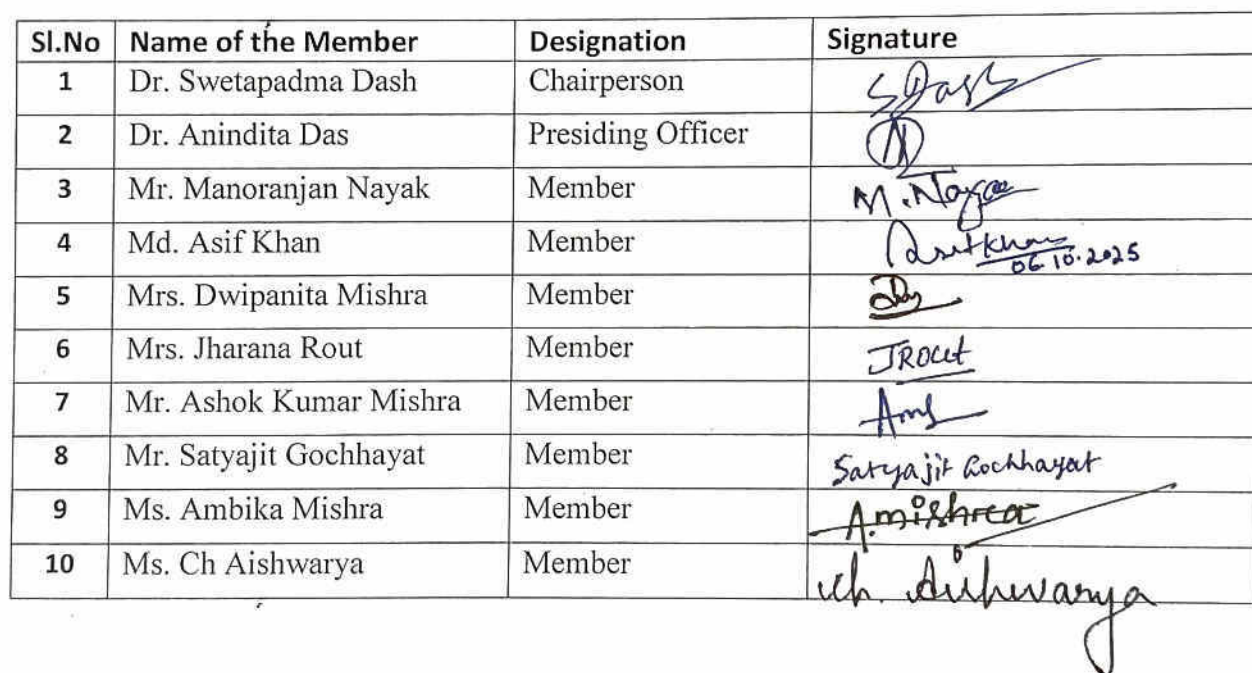 Sl.No Name of the Member Designation Signature
1 Dr. Swetapadma Dash Chairperson S Dash
2 Dr. Anindita Das Presiding Officer
3 Mr. Manoranjan Nayak Member M. Nayak
4 Md. Asif Khan Member Asif Khan
06.10.2025
5 Mrs. Dwipanita Mishra Member
6 Mrs. Jharana Rout Member JRout
7 Mr. Ashok Kumar Mishra Member
8 Mr. Satyajit Gochhayat Member Satyajit Gochhayat
9 Ms. Ambika Mishra Member A.mishra
10 Ms. Ch Aishwarya Member Ch. Aishwarya